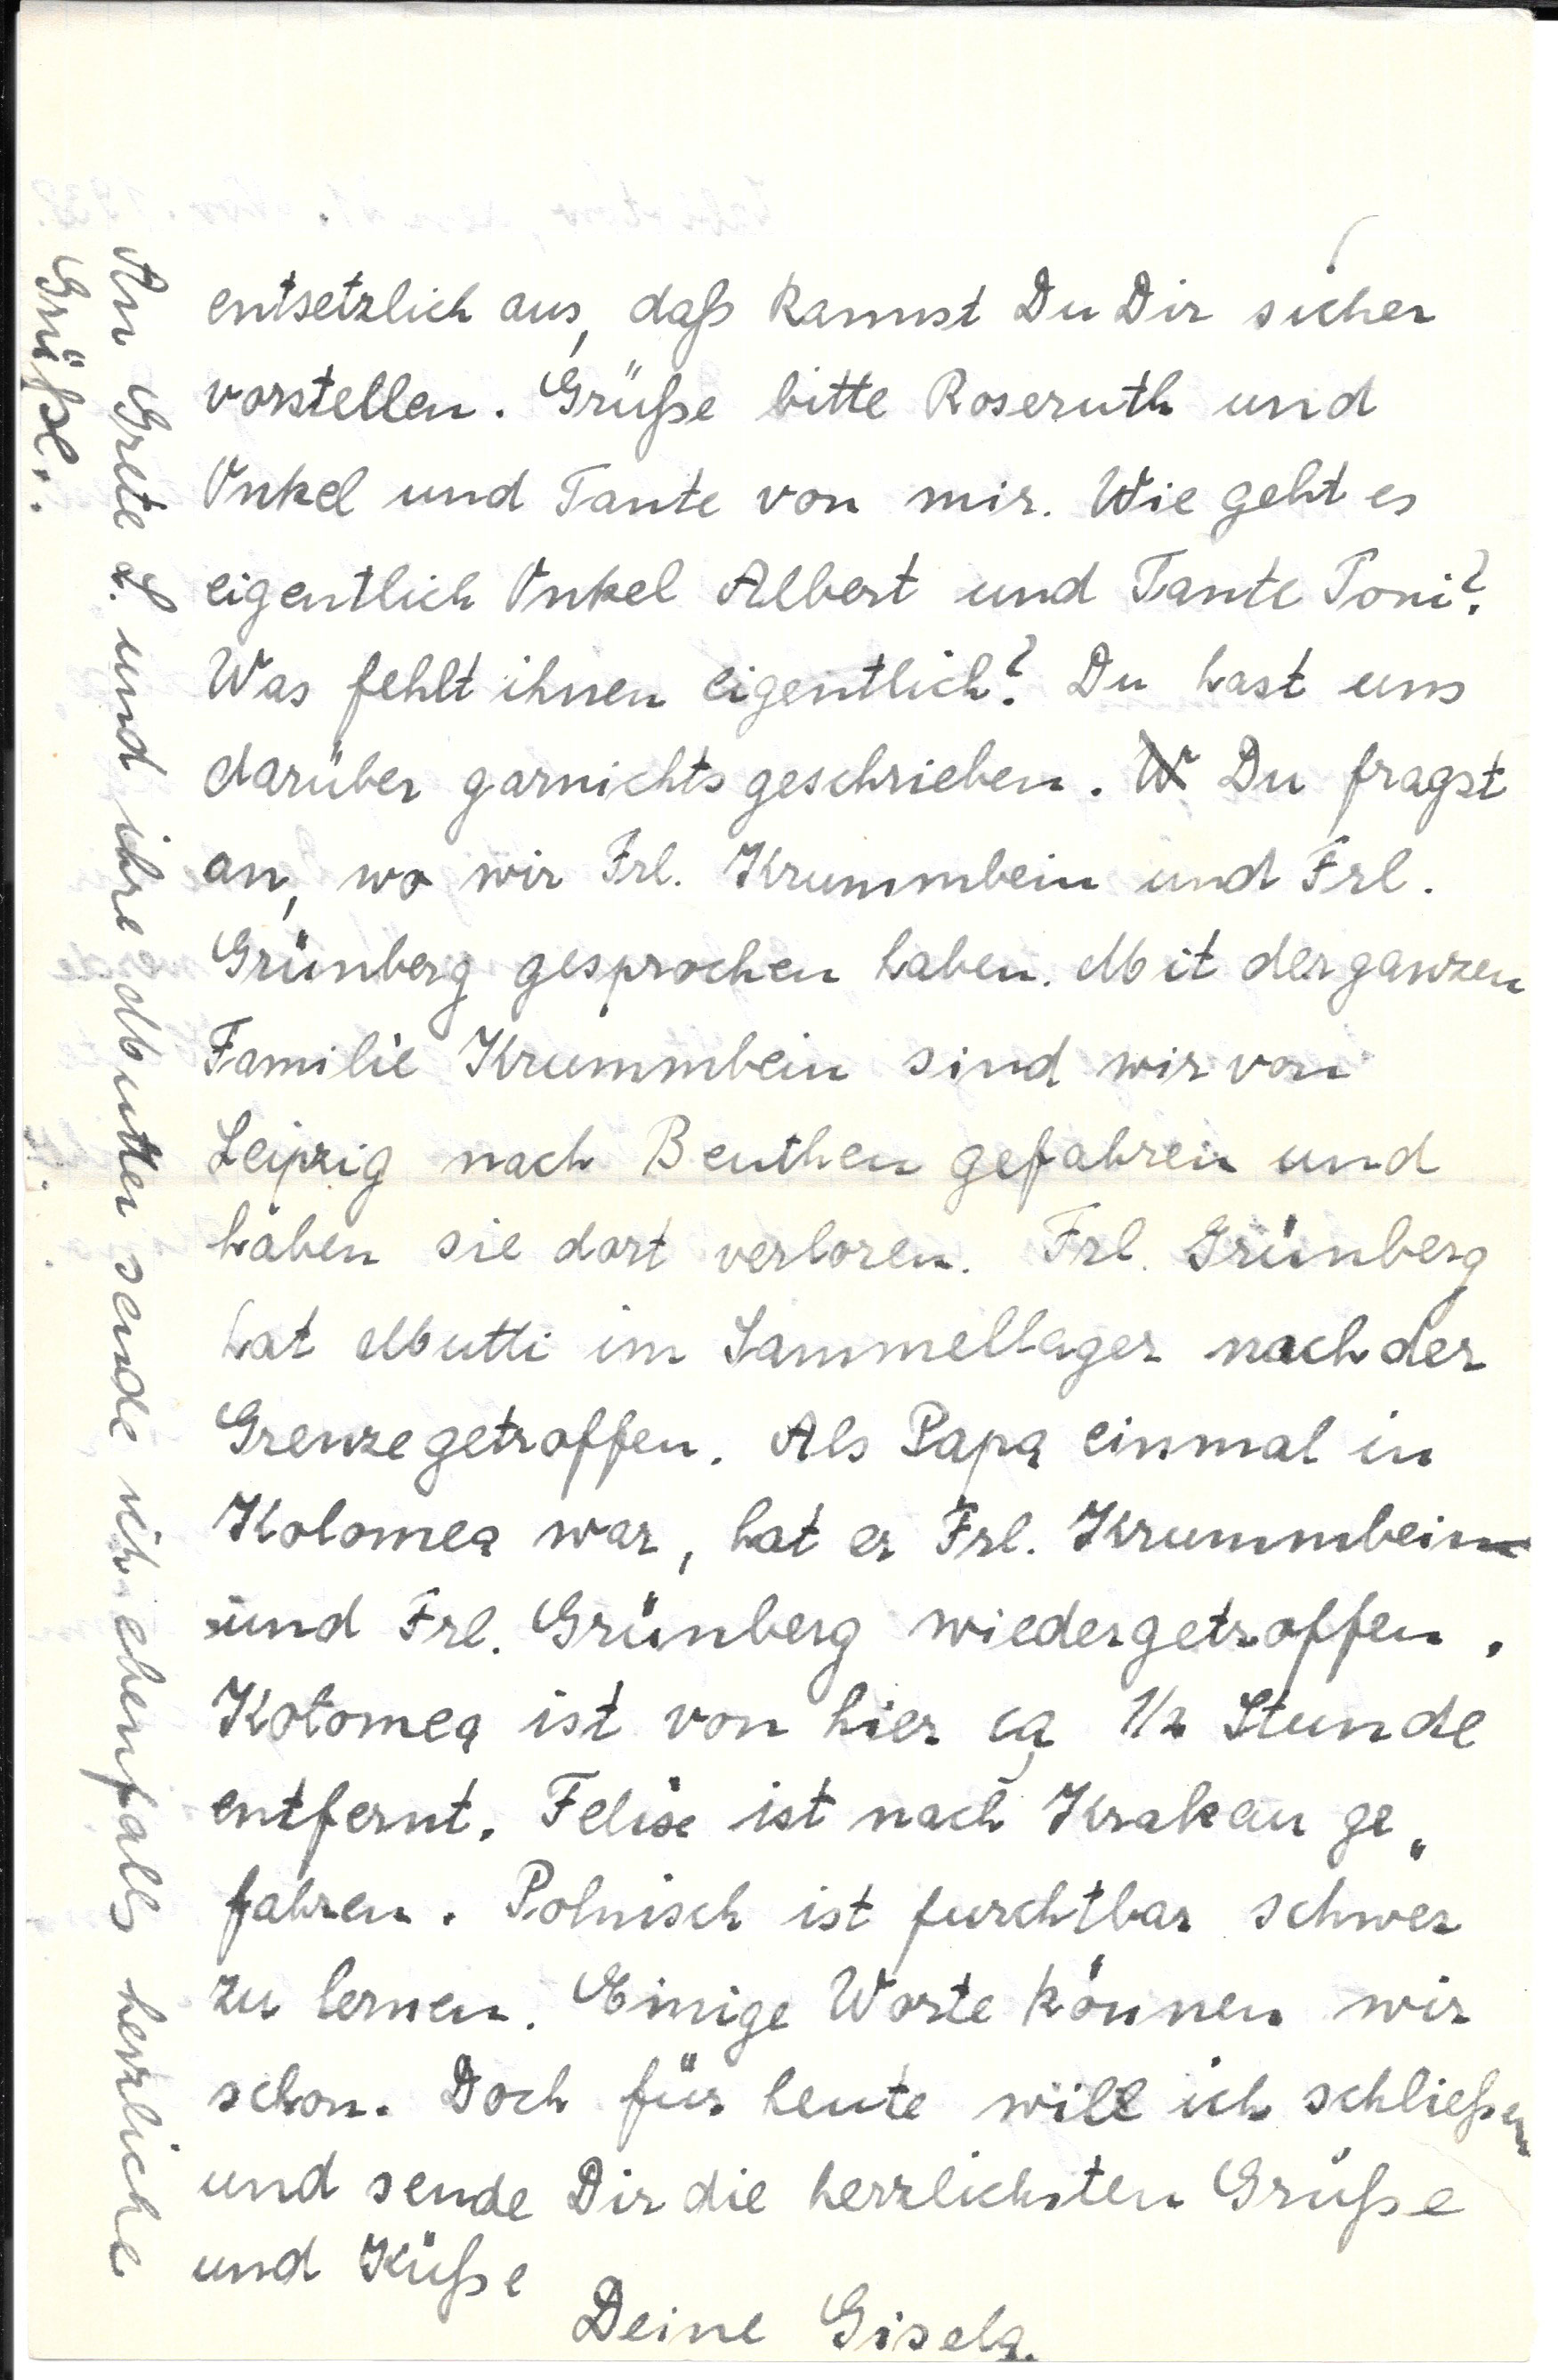 entsetzlich aus, daß kannst Du Dir sicher
vorstellen. Grüße bitte Roseruth und
Onkel und Tante von mir. Wie geht es
eigentlich Onkel Albert und Tante Toni?
Was fehlt ihnen eigentlich? Du hast uns
darüber garnichts geschrieben. W Du fragst
an, wo wir Frl. Krummbein und Frl.
Grünberg gesprochen haben. Mit der ganzen
Familie Krummbein sind wir von
Leipzig nach Beuthen gefahren und
haben sie dort verloren. Frl. Grünberg
hat Mutti im Sammellager nach der
Grenze getroffen. Als Papa einmal in
Kolomea war, hat er Frl. Krummbein
und Frl. Grünberg wiedergetroffen.
Kolomea ist von hier ca 1/2 Stunde
entfernt. Felix ist nach Krakau ge„
fahren. Polnisch ist furchtbar schwer
zu lernen. Einige Worte können wir
schon. Doch für heute will ich schließen
und sende Dir die herzlichsten Grüße
und Küße
Deine Gisela.
An Grete L. und ihre Mutter sende ich ebenfalls herzliche
Grüße.